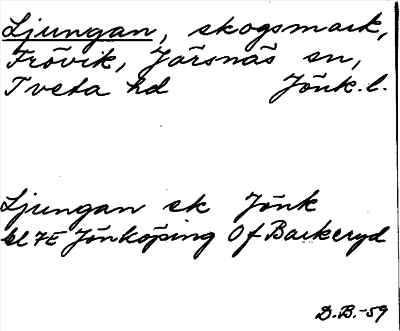 Ljungan, skogsmark,
Frövik, Järsnäs sn,
Tveta hd Jönk.l.
Ljungan sk Jönk
bl 7E Jönköping Of Barkeryd
D.B.-59